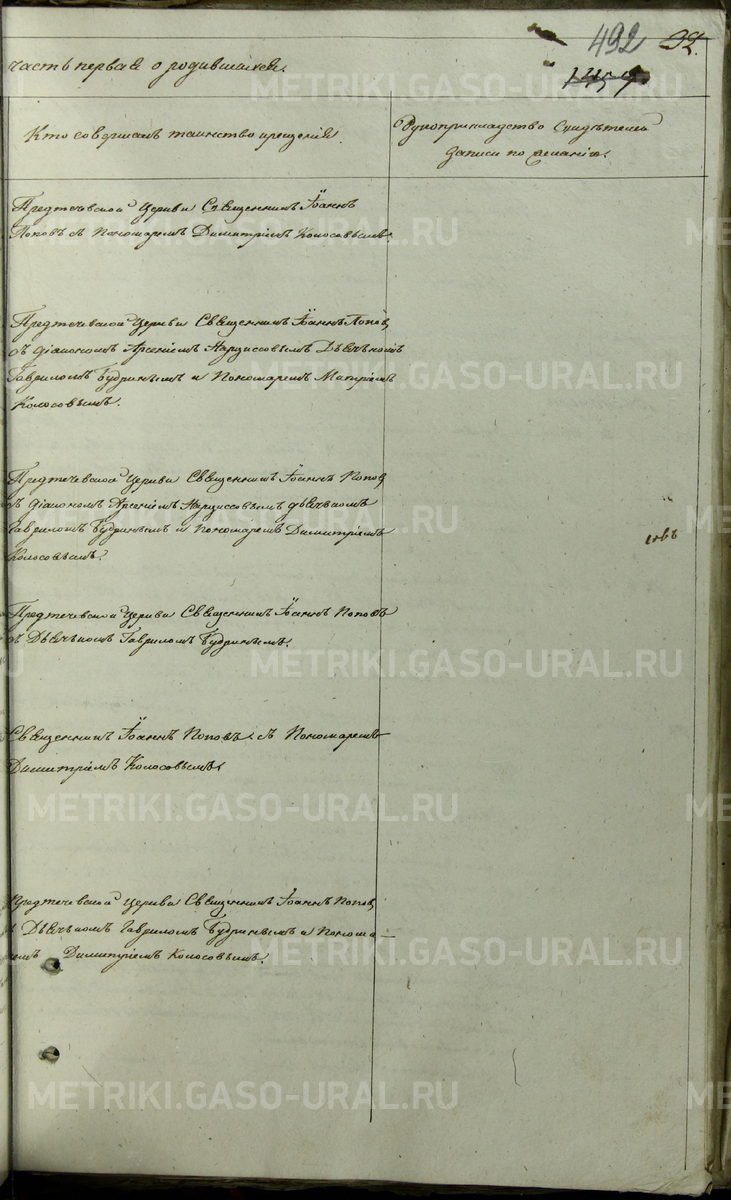 492 92.
1459.
часть первая о родившихся.
Кто совершалъ таинство крещенія
Рукоприкладство Свидѣтелей
записи по желанію.
Предтечевской Церкви Священникъ Іоаннъ
Поповъ съ Пономаремъ Димитріемъ Колосовымъ.
Предтечевской Церкви Священникъ Іоаннъ Попов
съ діакономъ Арсеніемъ Нарциссовымъ Дьячькомъ
Гавриломъ Будринымъ и Пономаремъ
Колосовымъ.
Предтечевской Церкви Священникъ Іоаннъ Попов
съ діакономъ Арсеніемъ Нарциссовымъ дьячкомъ
Гавриломъ Будринымъ и Пономаремъ Димитріемъ
Колосовымъ.
Предтечевской Церкви Священникъ Іоаннъ Поповъ
съ Дьячькомъ Гавриломъ Будринымъ.
Священникъ Іоаннъ Поповъ съ Пономаремъ
Димитріемъ Колосовымъ.
Предтечевской Церкви Священникъ Іоаннъ Попов
съ Дьячькомъ Гавриломъ Будринымъ и Понома–
ремъ Димитріемъ Колосовымъ.
METRIKI.GASO-URAL.RU